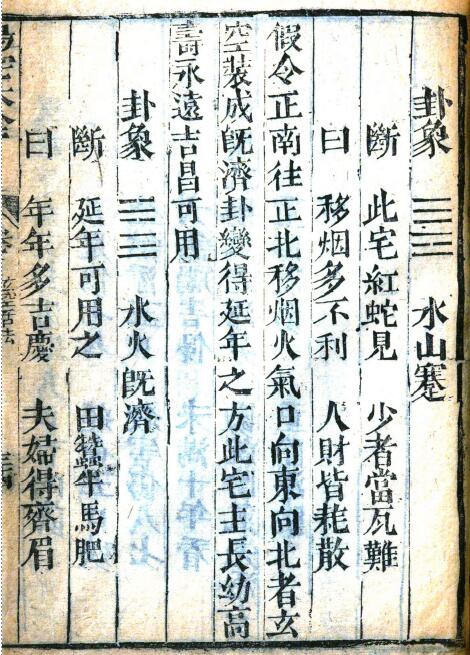 卦象 ☰☰ 水山蹇
斷 此宅紅蛇見 少者當瓦難
曰 移烟多不利 人財皆耗散
假令正南往正北移烟火氣口向東向北者玄
空装成旣濟卦變得延年之方此宅主長幼高
壽永遠吉昌可用
卦象 ☰☰ 水火旣濟
斷 延年可用之 田蠶牛馬肥
曰 年年多吉慶 夫婦得齊眉